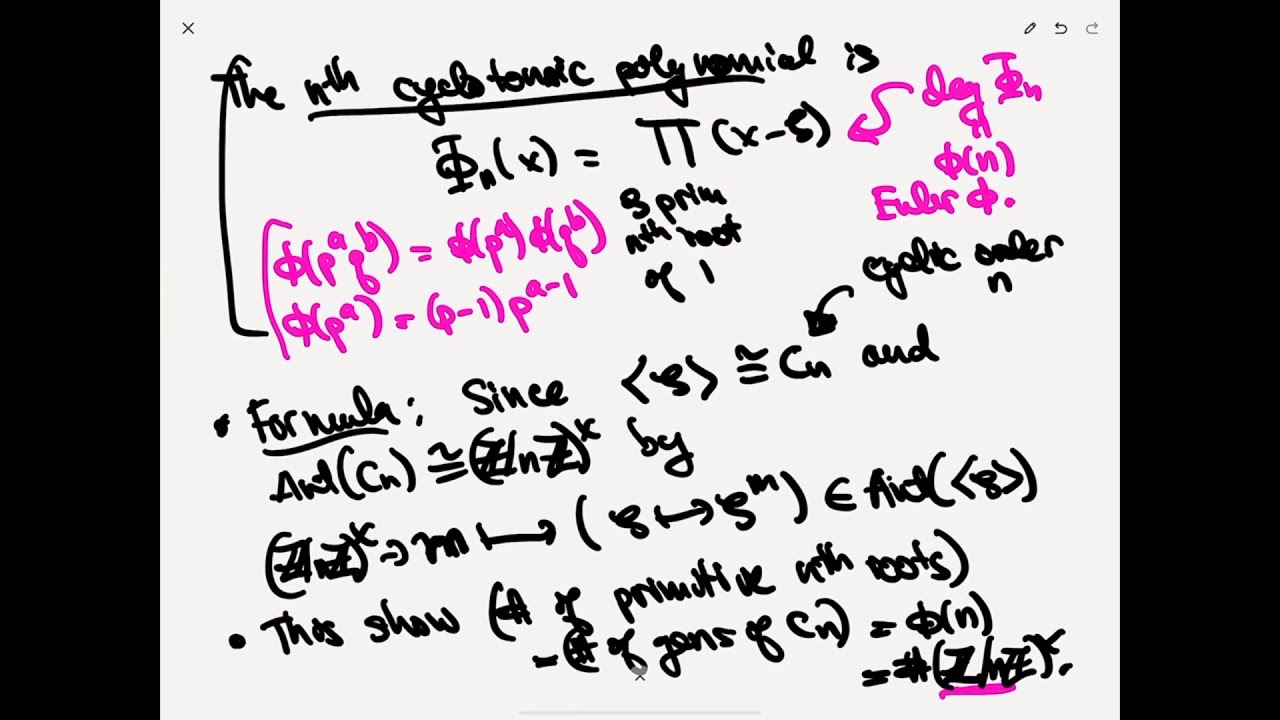 The nth cyclotomic polynomial is
Φₙ(x) = ∏ (x-ζ)
ζ prim
nth root
of 1
deg Φₙ
||
ϕ(n)
Euler ϕ.
ϕ(pᵃqᵇ) = ϕ(pᵃ)ϕ(qᵇ)
ϕ(pᵃ) = (p-1)pᵃ⁻¹
cyclic order
n
• Formula: Since <ζ> ≅ Cₙ and
Aut(Cₙ) ≅ (ℤ/nℤ)ˣ by
(ℤ/nℤ)ˣ ∋ m ↦ (ζ ↦ ζᵐ) ∈ Aut(<ζ>)
• This show (# of primitive nth roots)
= (# of gens of Cₙ) = ϕ(n)
= #(ℤ/nℤ)ˣ.